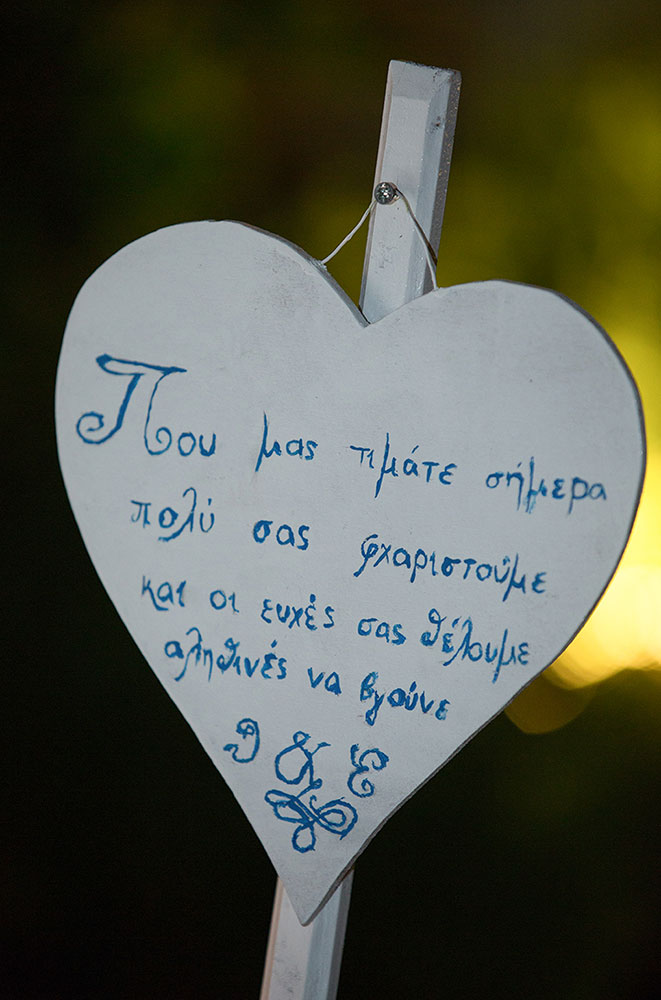 Που μας τιμάτε σήμερα
πολύ σας φχαριστούμε
και οι ευχές σας θέλουμε
αληθινές να βγούνε
Θ & Ε